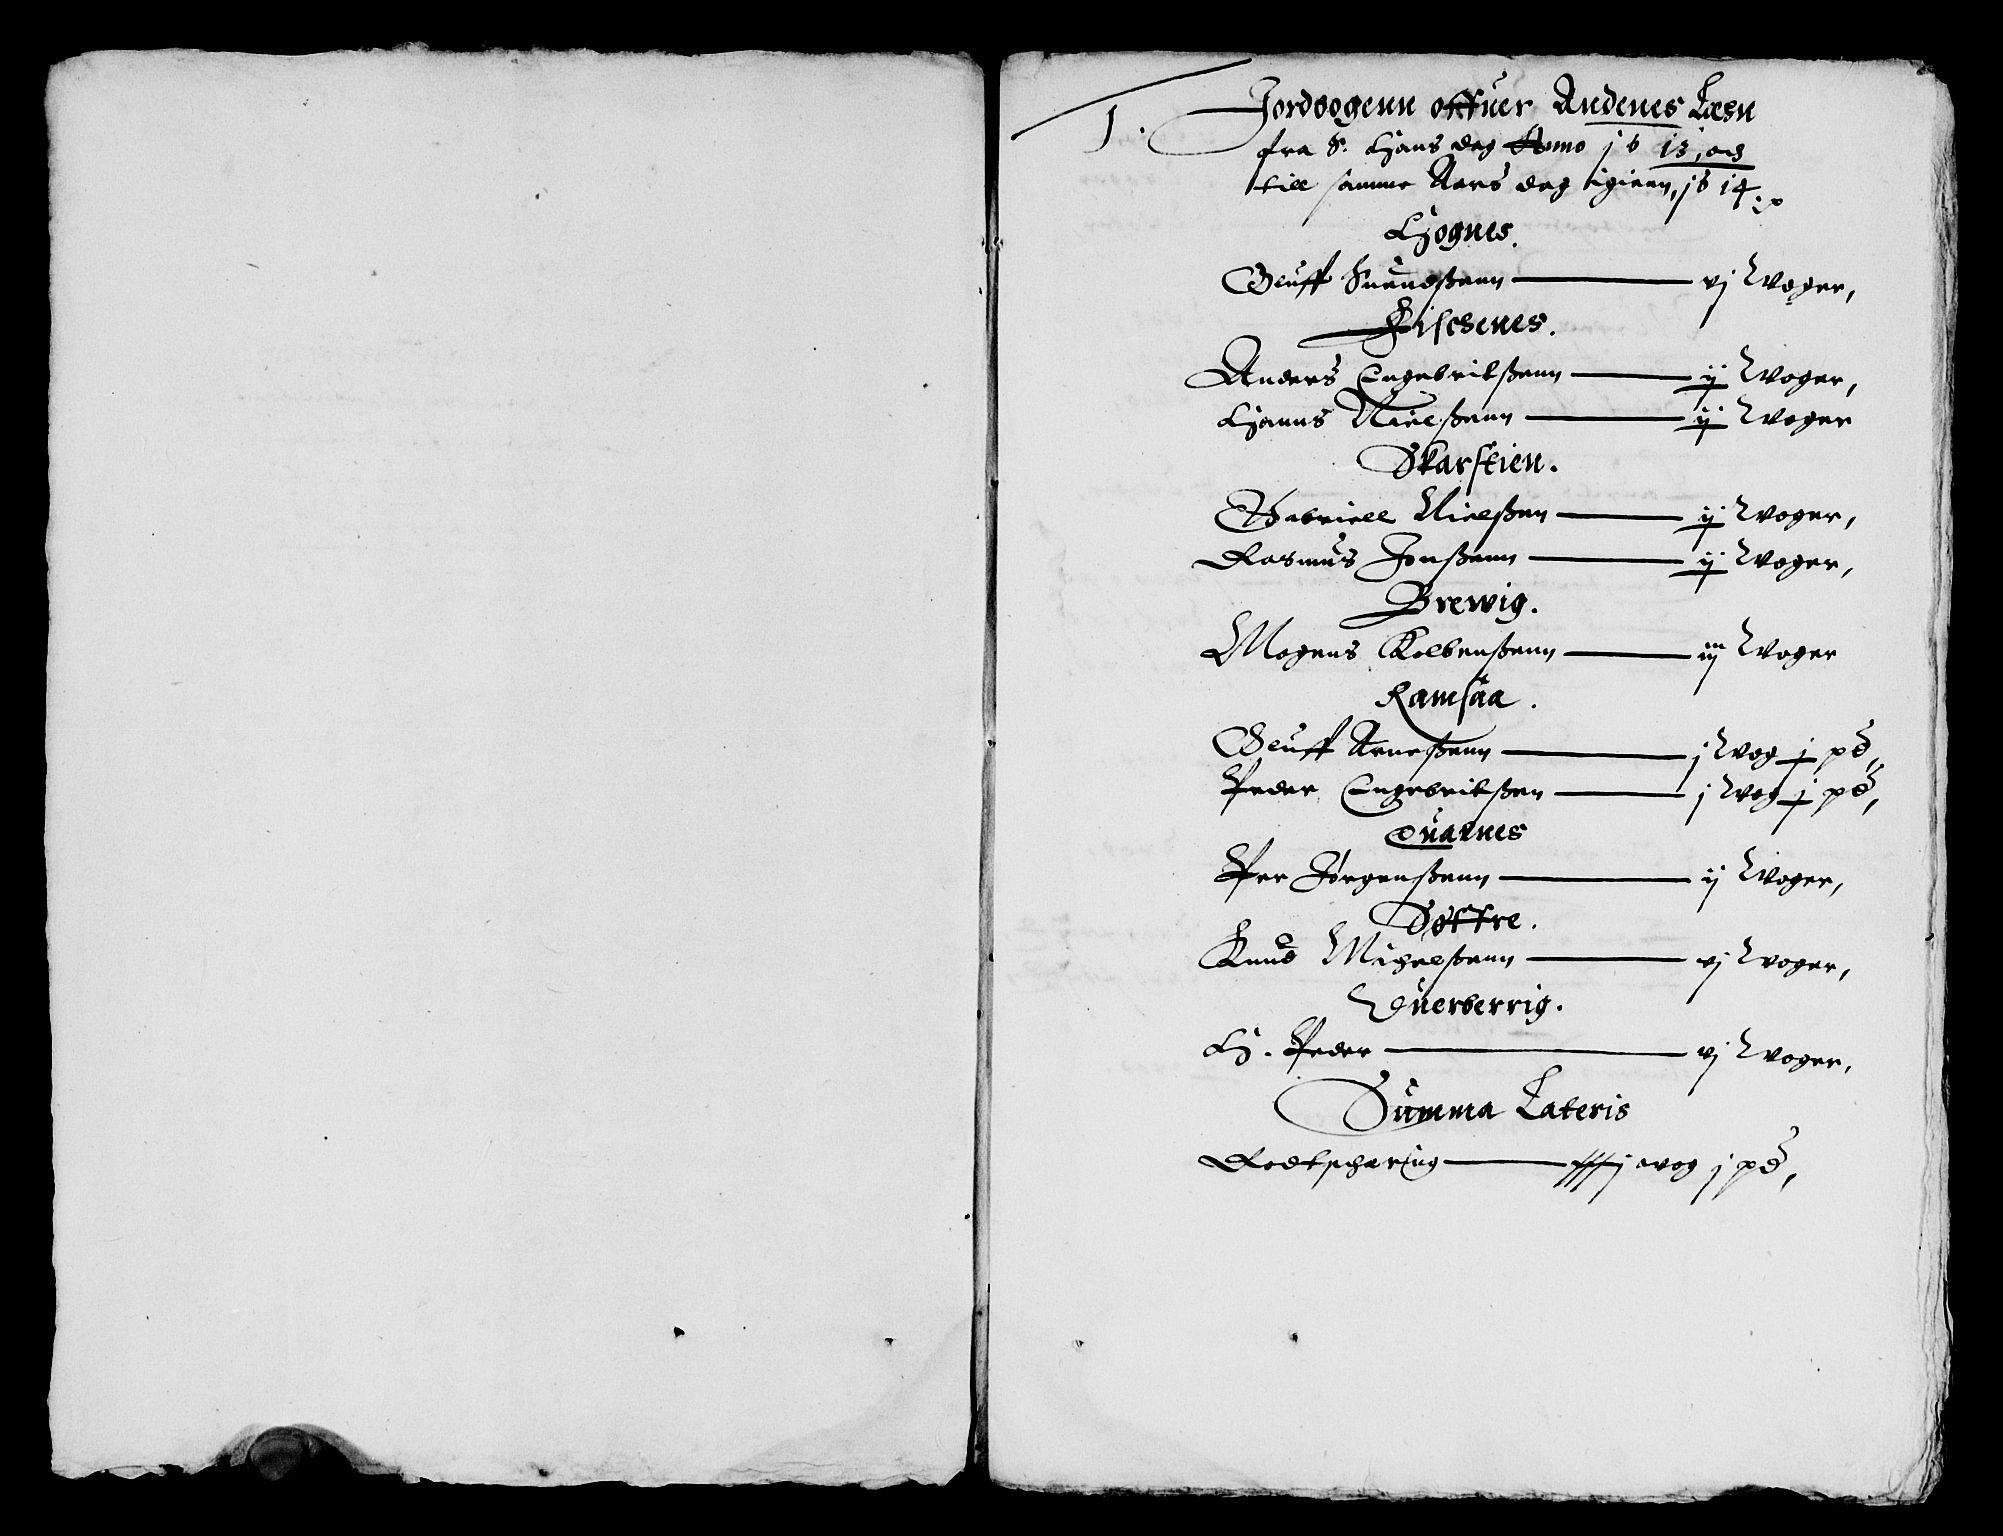 1.
Jordbogenn offuer Andenes Læn
fra S. Hans dag Anno j6 13, och
till samme Aars dag igienn, j6 14.
Hognes.
Oluff Suendßenn — vj Woger,
Fischenes.
Anders Engebritßenn — ij Woger,
Hanns Nielßenn — ij Woger
Skarstien.
Gabriell Nielßen — ij Woger,
Rasmus Jonßenn — ij Woger,
Brewig.
Mogens Kolbenßenn — iij Woger
Ramsaa.
Oluff Arneßenn — j Wog j pd,
Peder Engebritßen — j Wog j pd,
Qualnes
Per Jørgenßenn — ij Woger,
Døffre.
Knud Michelßenn — vj Woger,
Querberrig.
H. Peder — vj Woger,
Summa Lateris
Rodtschering — j wog j pd,